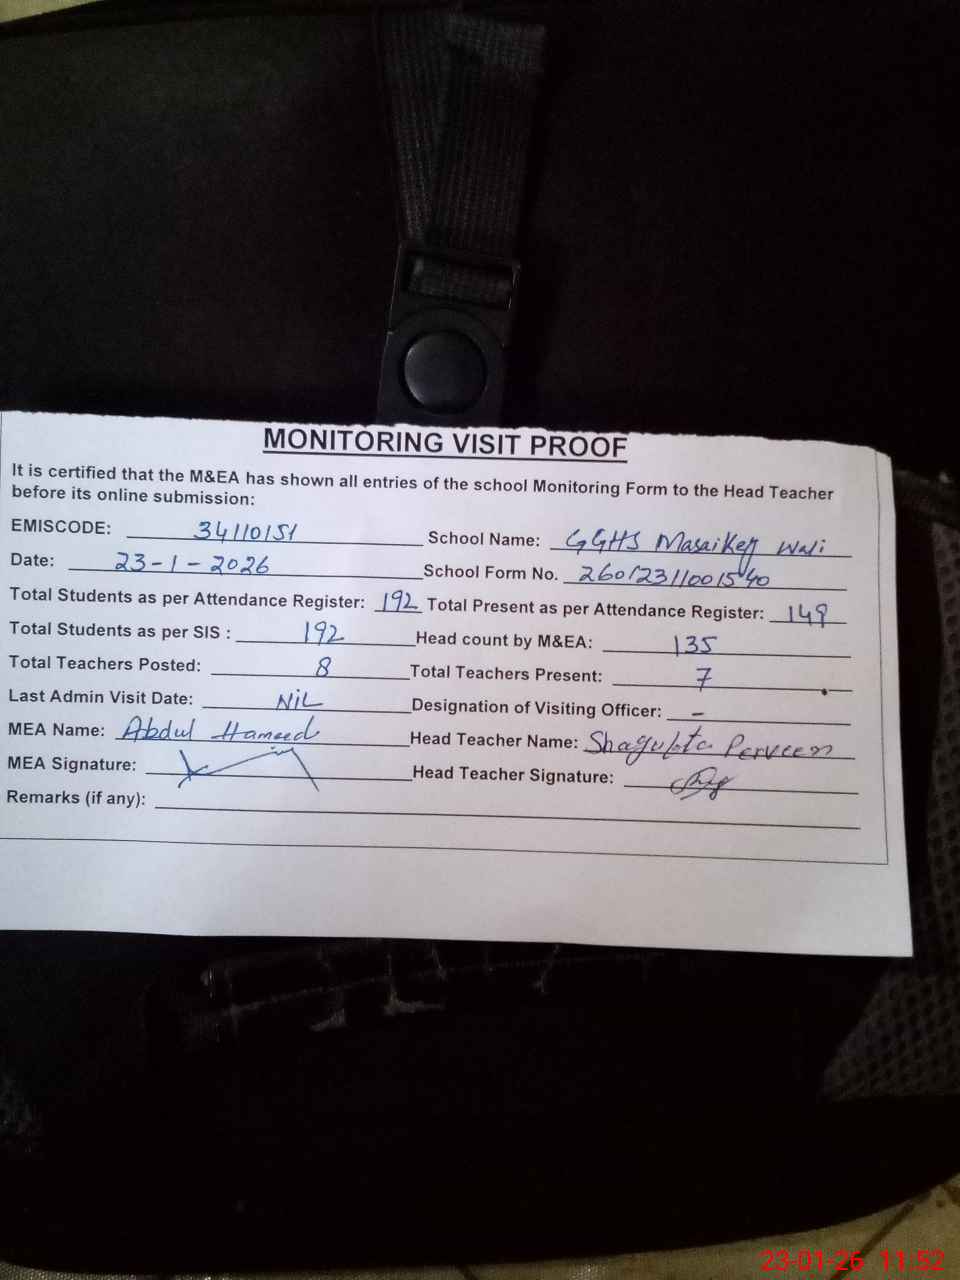 MONITORING VISIT PROOF
It is certified that the M&EA has shown all entries of the school Monitoring Form to the Head Teacher
before its online submission:
EMISCODE: 34110151 School Name: GGHS Masaikey Wali
Date: 23-1-2026 School Form No. 26012311001540
Total Students as per Attendance Register: 192 Total Present as per Attendance Register: 149
Total Students as per SIS : 192 Head count by M&EA: 135
Total Teachers Posted: 8 Total Teachers Present: 7
Last Admin Visit Date: NIL Designation of Visiting Officer: -
MEA Name: Abdul Hameed Head Teacher Name: Shagufta Perveen
MEA Signature: Head Teacher Signature:
Remarks (if any):
23-01-26 11:52